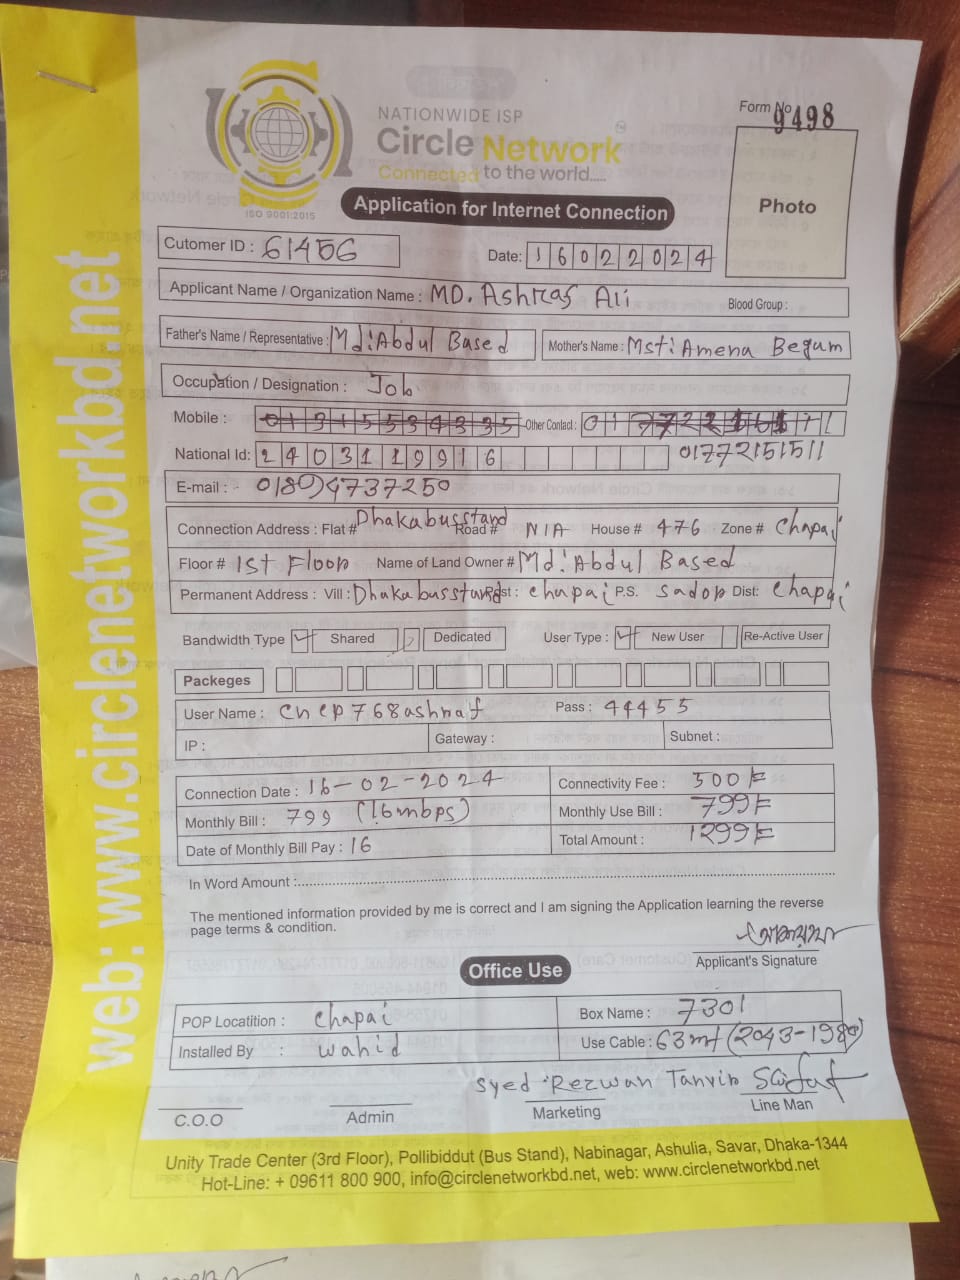 NATIONWIDE ISP
Circle Network
Connected to the world.....
ISO 9001:2015
Form No 9498
Photo
Application for Internet Connection
web: www.circlenetworkbd.net
Cutomer ID : 61456
Date: 16022024
Applicant Name / Organization Name : MD. Ashraf Ali Blood Group :
Father's Name / Representative : Md: Abdul Based Mother's Name : Mst: Amena Begum
Occupation / Designation : Job
Mobile : 01315534335 Other Contact : 01
National Id: 2403119916 01772151511
E-mail : 01894737250
Connection Address : Flat # Dhakabusstand Road # N/A House # 476 Zone # Chapai
Floor # 1st Floor Name of Land Owner # Md: Abdul Based
Permanent Address : Vill : Dhakabusstand Post : chapai P.S. Sador Dist: Chapai
Bandwidth Type Shared Dedicated User Type : New User Re-Active User
Packeges
User Name : cncp768ashraf Pass : 44455
IP : Gateway : Subnet :
Connection Date : 16-02-2024 Connectivity Fee : 500/=
Monthly Bill : 799 (16mbps) Monthly Use Bill : 799/=
Date of Monthly Bill Pay : 16 Total Amount : 1299/=
In Word Amount :
The mentioned information provided by me is correct and I am signing the Application learning the reverse
page terms & condition.
Applicant's Signature
Office Use
POP Locatition : Chapai Box Name : 7301
Installed By : wahid Use Cable : 63mt (2043-1980)
Syed Rezwan Tanvir
C.O.O Admin Marketing Line Man
Unity Trade Center (3rd Floor), Pollibiddut (Bus Stand), Nabinagar, Ashulia, Savar, Dhaka-1344
Hot-Line: + 09611 800 900, info@circlenetworkbd.net, web: www.circlenetworkbd.net